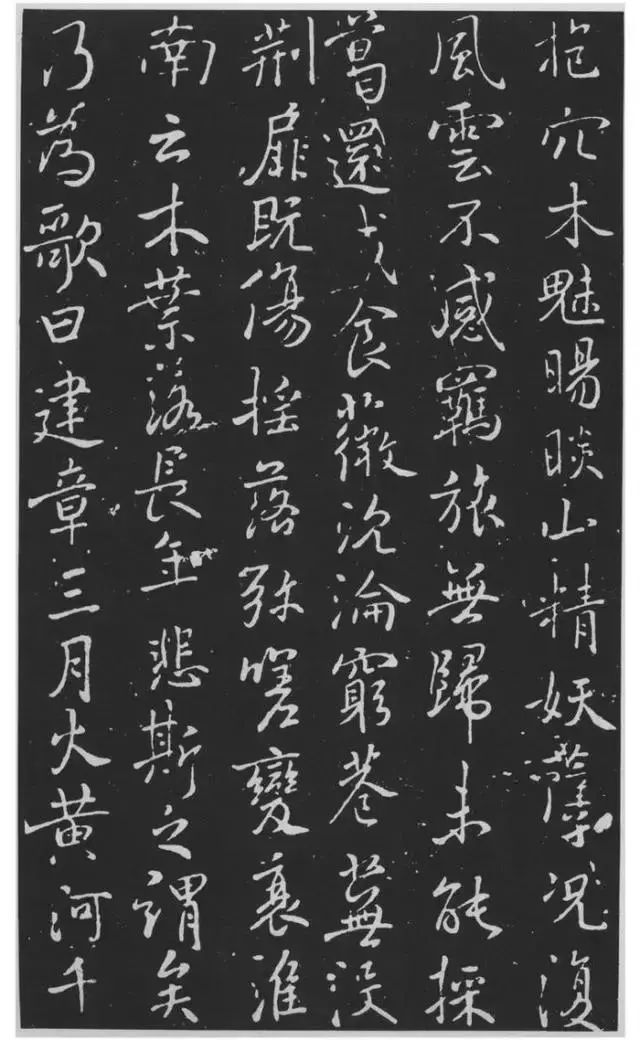 抱穴木魅晹睒山精妖孽況復
風雲不感羈旅無歸未能採
葛還成食薇沉淪窮巷蕪没
荊扉既傷搖落弥嗟變衰淮
南云木葉落長年悲斯之謂矣
乃為歌曰建章三月火黄河千